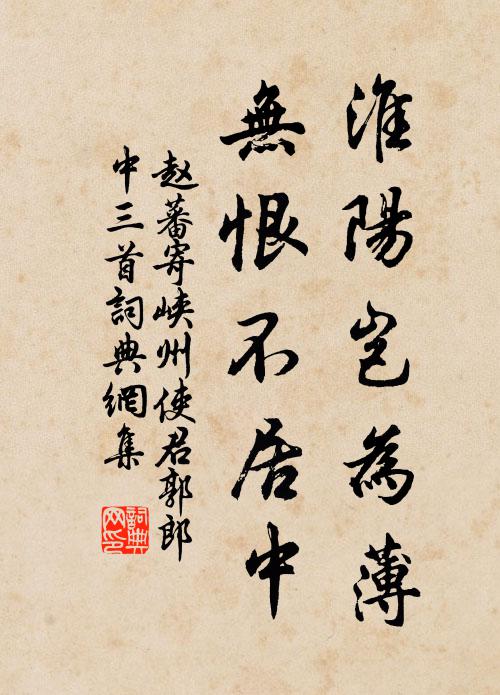 淮陽豈為薄
無恨不居中
赵蕃寄峡州使君郭郎
中三首詞典網集
詞典
网印